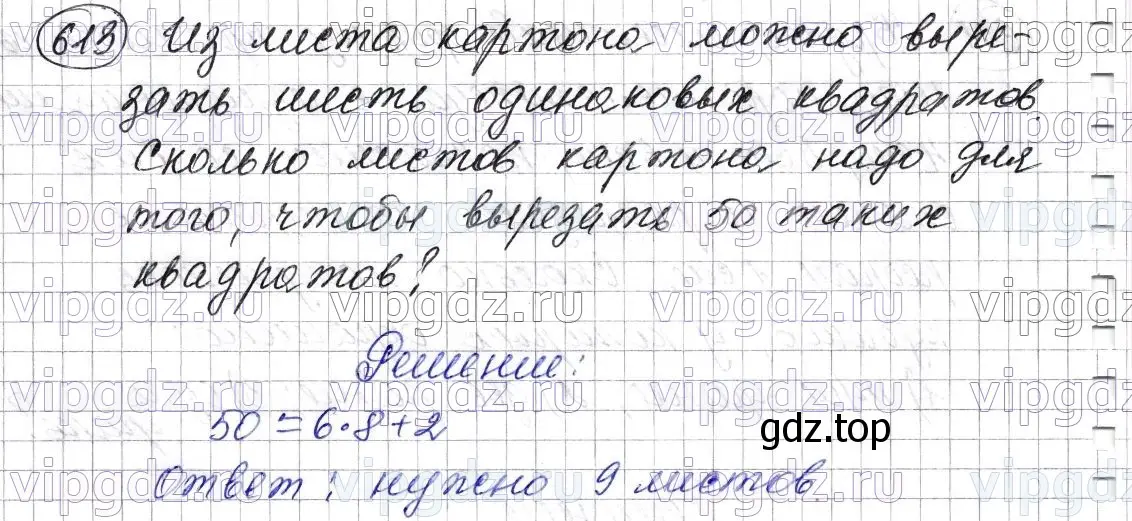 613 Из листа картона можно выре-
зать шесть одинаковых квадратов.
Сколько листов картона надо для
того, чтобы вырезать 50 таких
квадратов?
Решение:
50 = 6·8+2
gdz.top
Ответ: нужно 9 листов
vipgdz.ru